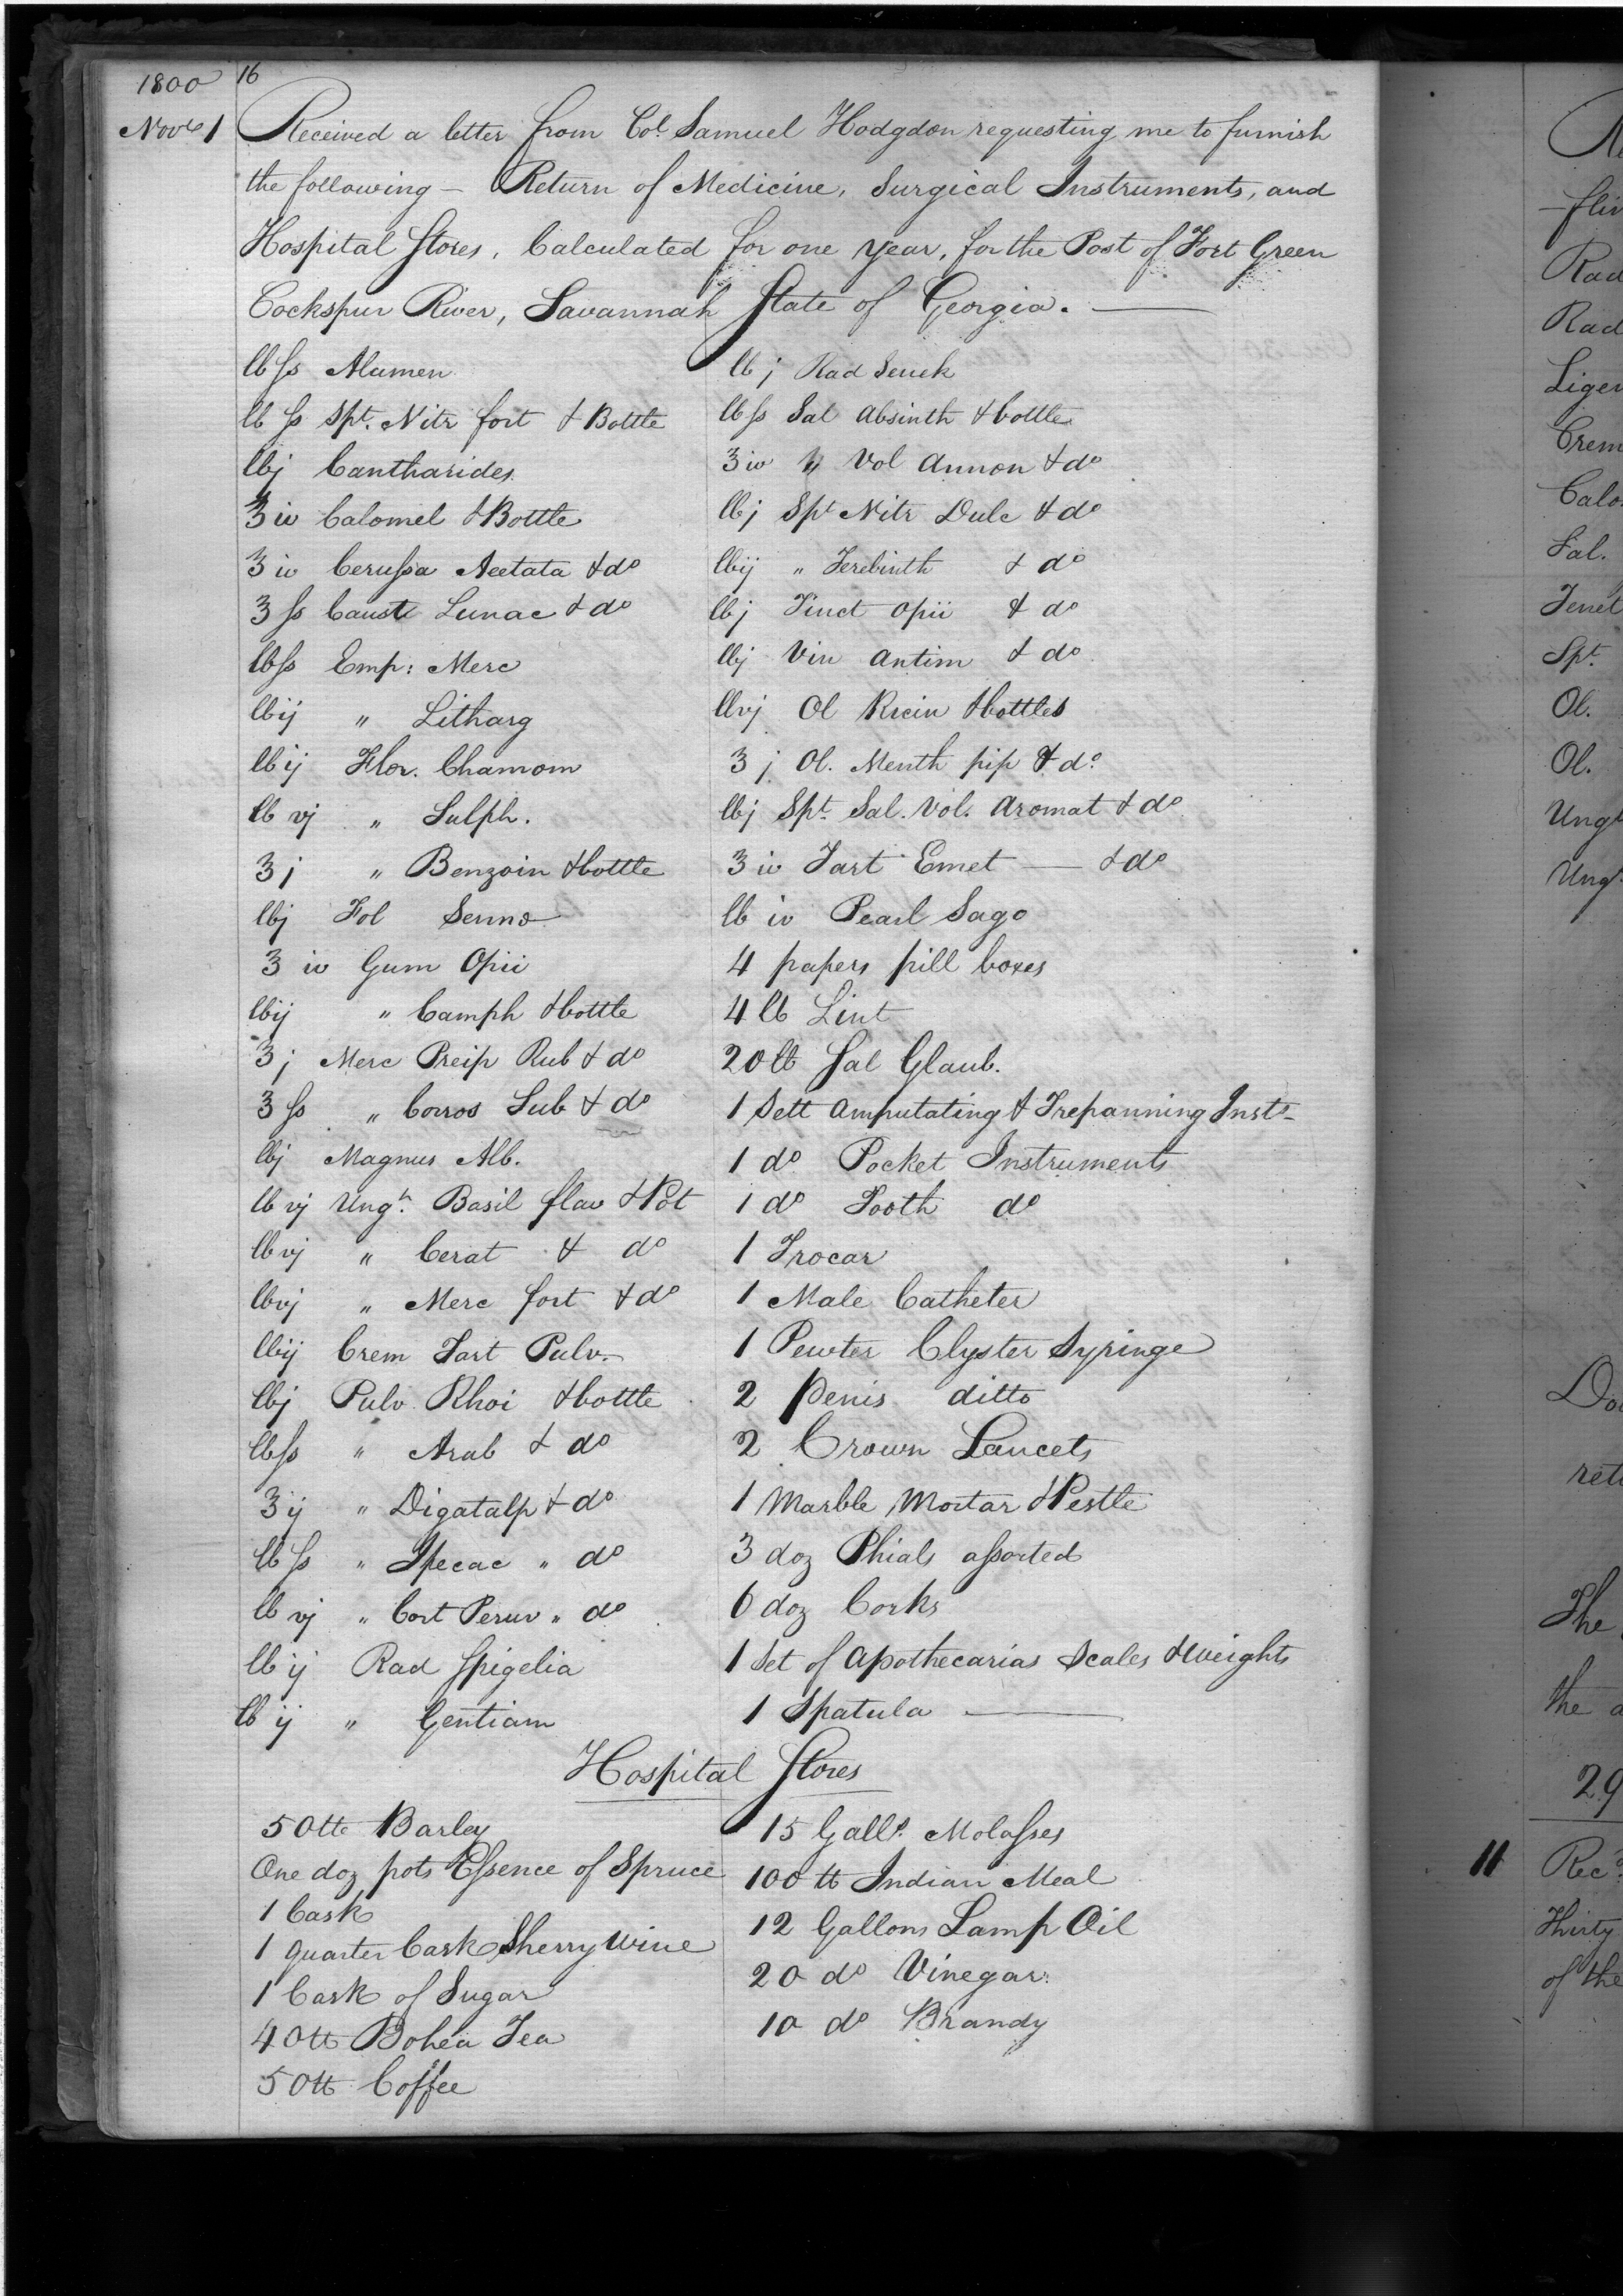 1800
16
Novr 1
Received a letter from Col. Samuel Hodgdon requesting me to furnish
the following — Return of Medicine, Surgical Instruments, and
Hospital Stores, Calculated for one year, for the Post of Fort Green
Cockspur River, Savannah State of Georgia. —
lb ss Alumen
lb ss Spt. Nitr fort & Bottle
lbj Cantharides
℥ iv Calomel & Bottle
℥ iv Cerussa Acetata & do
℥ ss Caust Lunae & do
lbss Emp: Merc
lbij " Litharg
lbij Flor. Chamom
lb vj " Sulph.
℥ j " Benzoin & bottle
lbj Fol Senna
℥ iv Gum Opii
lbij " Camph & bottle
℥ j Merc Preip Rub & do
℥ ss " Corros Sub & do
lbj Magnus Alb.
lb vj Ungt. Basil flav & Pot
lb vj " Cerat & do
lbvj " Merc fort & do
lbij Crem Tart Pulv.
lbj Pulv Rhoi & bottle
lbss " Arab & do
℥ ij " Digatalp & do
lb ss " Ipecac " do
lb vj " Cort Peruv " do
lb ij Rad Spigelia
lb ij " Gentiam
lb j Rad Senek
lb ss Sal Absinth & bottle
℥ iv " Vol Ammon & do
lbj Spt Nitr Dulc & do
lbij " Terebinth & do
lbj Tinct Opii & do
lbj Vin Antim & do
lbvj Ol Ricin & bottles
℥ j Ol. Menth pip & do.
lbj Spt. Sal. Vol. Aromat & do
℥ iv Tart Emet — & do
lb iv Pearl Sago
4 papers pill boxes
4 lb Lint
20 lb Sal Glaub.
1 Sett Amputating & Trepanning Insts
1 do Pocket Instruments
1 do Tooth do
1 Trocar
1 Male Catheter
1 Pewter Clyster Syringe
2 Penis ditto
2 Crown Lancets
1 Marble Mortar & Pestle
3 doz Phials assorted
6 doz Corks
1 Set of Apothecarias Scales & Weights
1 Spatula —
Hospital Stores
50 lb Barley
One doz pots Essence of Spruce
1 Cask
1 quarter Cask Sherry Wine
1 Cask of Sugar
40 lb Bohea Tea
50 lb Coffee
15 Galls. Molasses
100 lb Indian Meal
12 Gallons Lamp Oil
20 do Vinegar
10 do Brandy
Rad
Rad
Crem
Calo
Sal.
Spt.
Ol.
Ol.
Ungt
Ungt
The
the
29
11 Rec
Thirty
of the